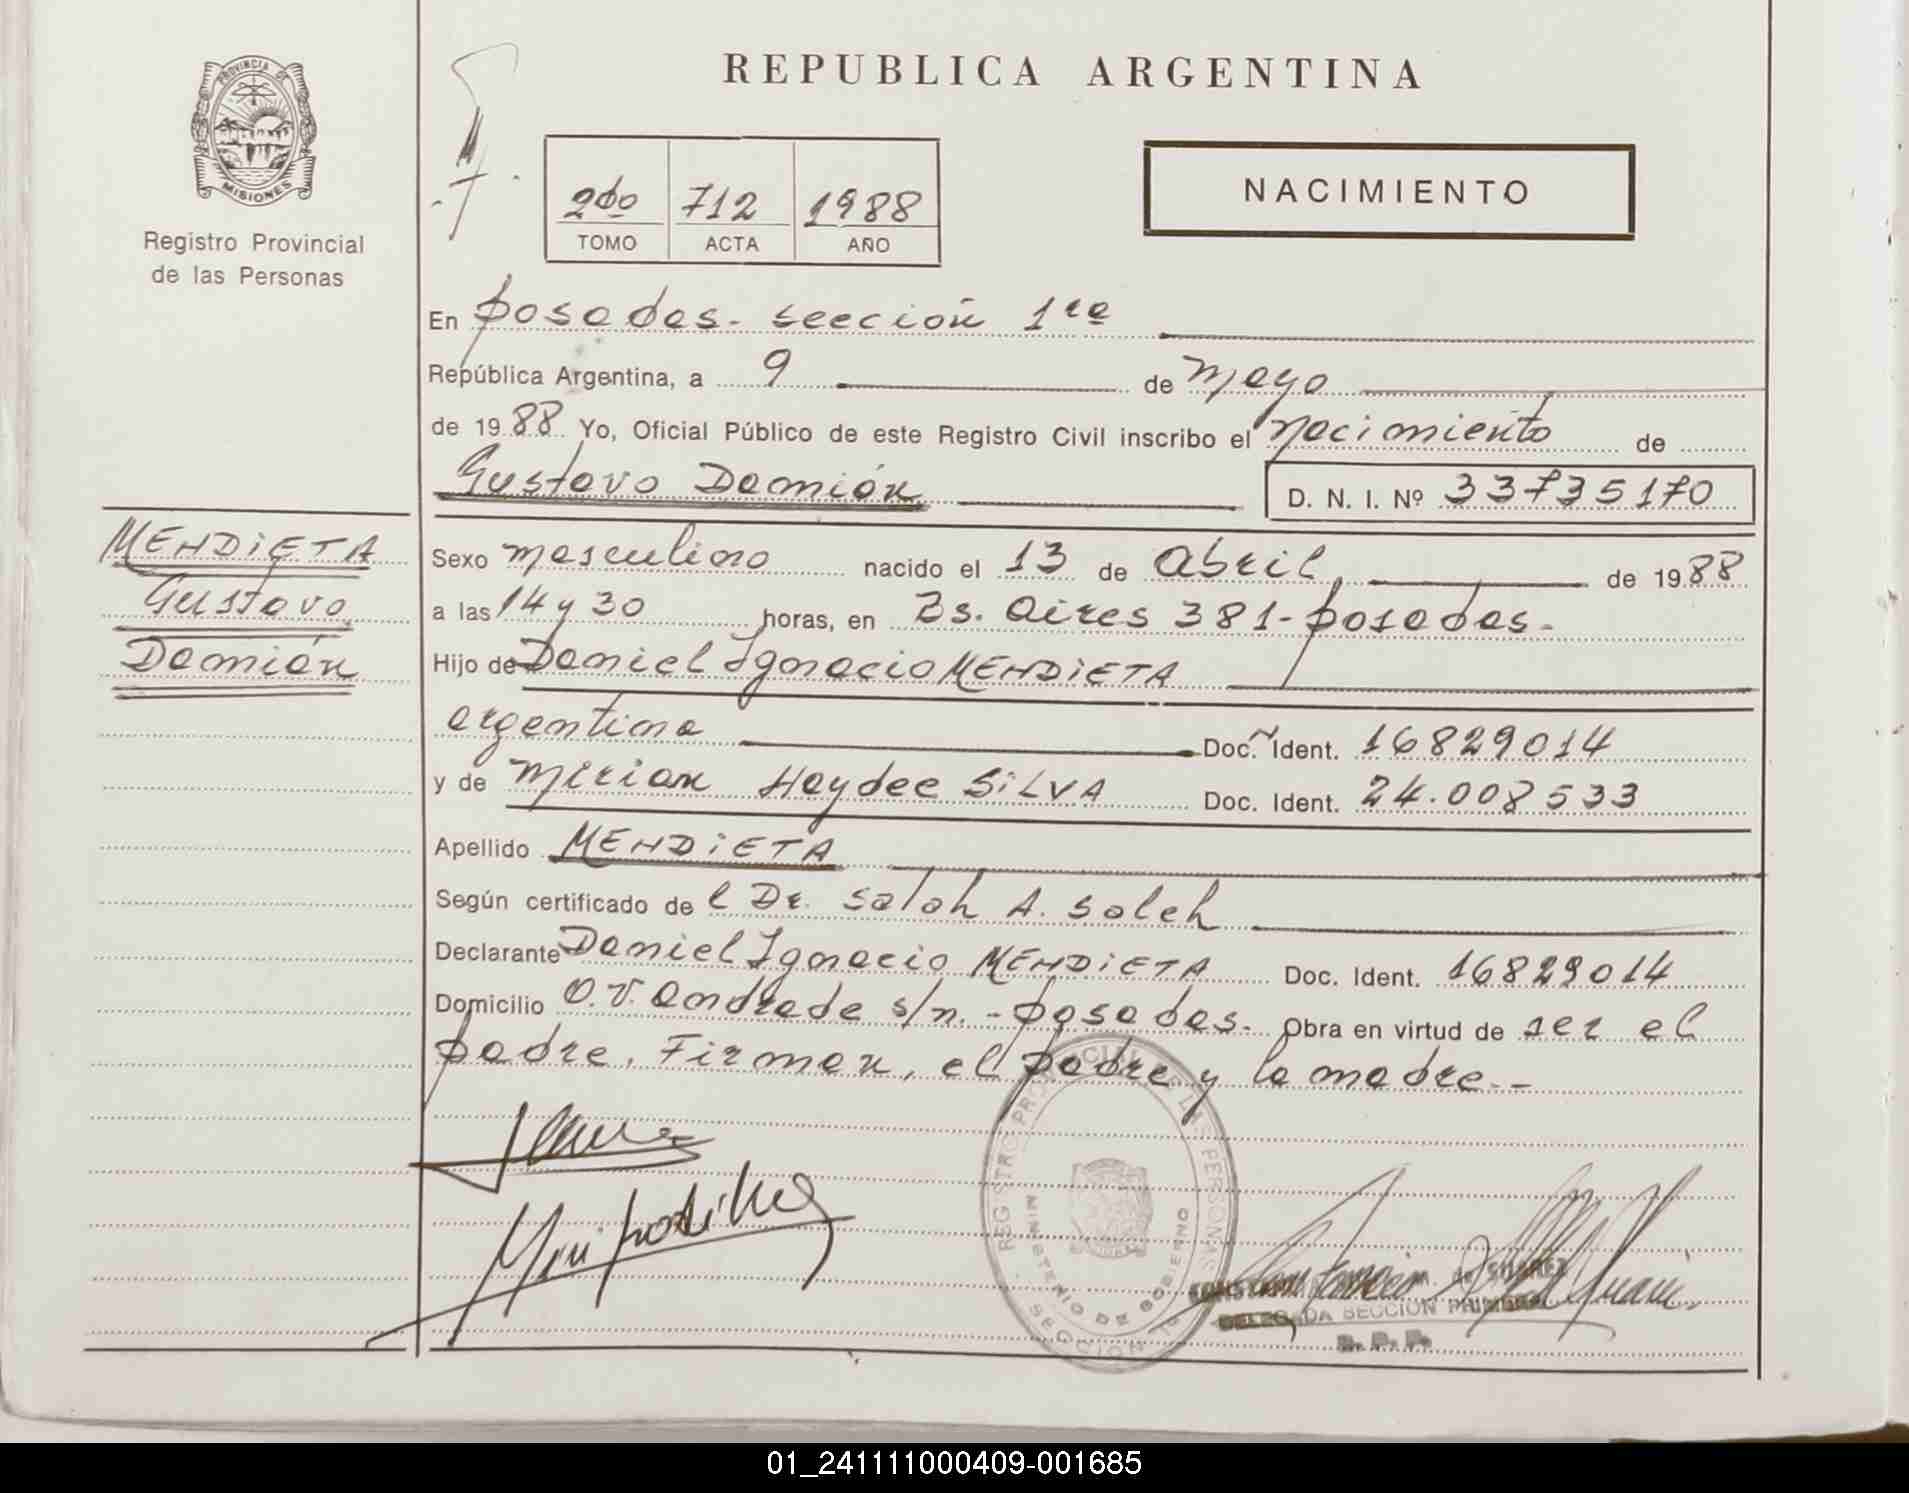 PROVINCIA DE
MISIONES
Registro Provincial
de las Personas
REPUBLICA ARGENTINA
2do 712 1988
TOMO ACTA AÑO
NACIMIENTO
En posadas - sección 1ra
República Argentina, a 9 de mayo
de 1988 Yo, Oficial Público de este Registro Civil inscribo el nacimiento de
Gustavo Damián D. N. I. Nº 33735170
MENDIETA
Gustavo
Damián
Sexo masculino nacido el 13 de abril de 1988
a las 14 y 30 horas, en Bs. aires 381 - posadas -
Hijo de Daniel Ignacio MENDIETA
argentina Doc. Ident. 16829014
y de Mirian Haydee SILVA Doc. Ident. 24.008533
Apellido MENDIETA
Según certificado de l Dr. Salah A. Saleh
Declarante Daniel Ignacio MENDIETA Doc. Ident. 16829014
Domicilio O.V. andrade s/n. - posadas - Obra en virtud de ser el
padre. Firman, el padre y la madre - -
REGISTRO PROVINCIAL DE LAS PERSONAS
MINISTERIO DE GOBIERNO
SECCION 1º
de SUAREZ
DELEGADA SECCION PRIMERA
R. P. P.
01_241111000409-001685